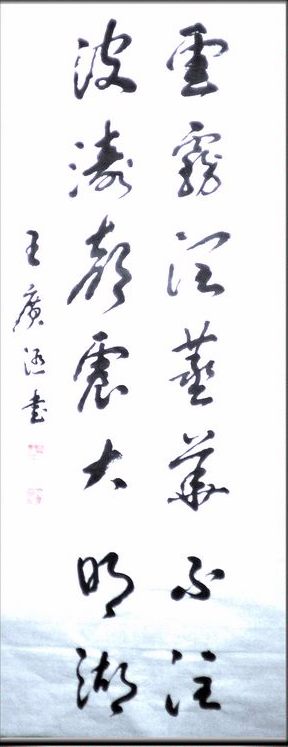 雲霧潤蒸華不注
波濤聲震大明湖
王廣書